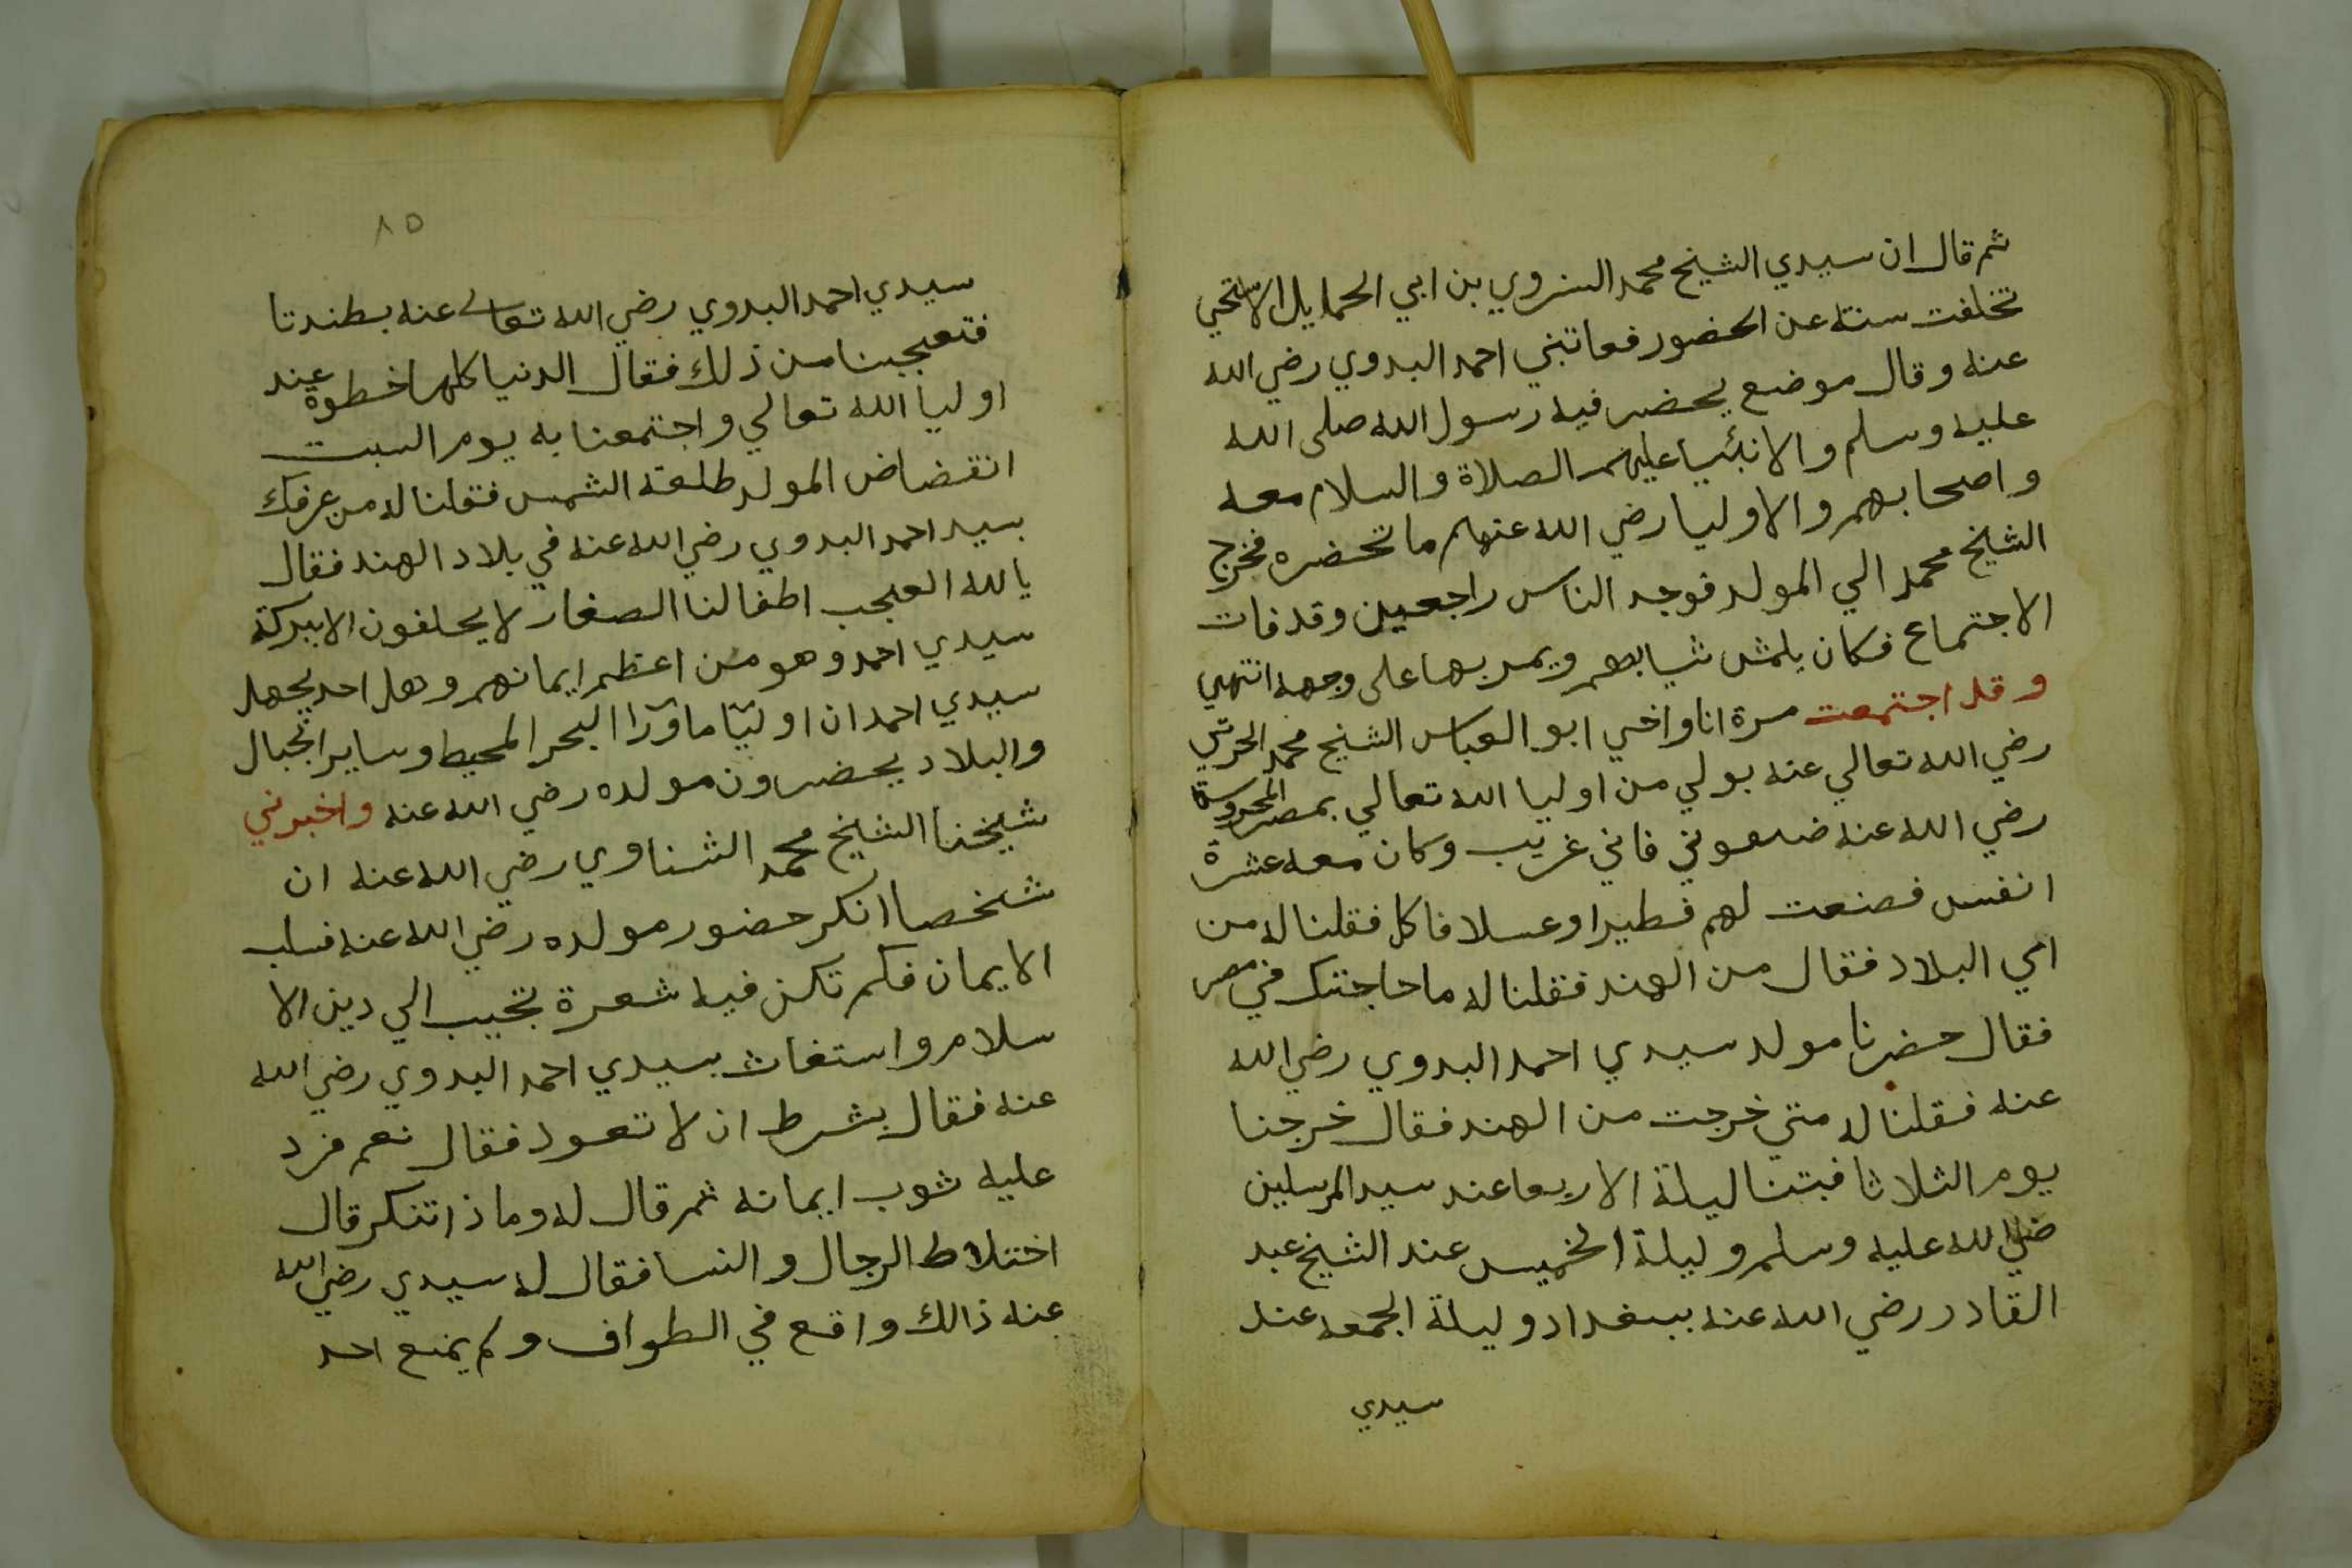 ثم قال ان سيدي الشيخ محمد السروي بن ابي الحمايل الاستحي
تخلفت سنة عن الحضور فعاتبني احمد البدوي رضي الله
عنه وقال موضع يحضر فيه رسول الله صلى الله
عليه وسلم والانبئيا عليهم الصلاة والسلام معه
واصحابهم والاوليا رضي الله عنهم ما تحضره فخرج
الشيخ محمد الي المولد فوجد الناس راجعين وقد فات
الاجتماع فكان يلمش ثيابهم ويمر بها على وجهه انتهي
وقد اجتمعت مرة انا واخي ابو العباس الشيخ محمد الحرثي
رضي الله تعالي عنه بولي من اوليا الله تعالي بمصر المحروسة
رضي الله عنه ضيعوني فاني غريب وكان معه عشرة
انفس فصنعت لهم فطيرا وعسلا فاكل فقلنا له من
اي البلاد فقال من الهند فقلنا له ما حاجتك في مصر
فقال حضرنا مولد سيدي احمد البدوي رضي الله
عنه فقلنا له متي خرجت من الهند فقال خرجنا
يوم الثلاثا فبتنا ليلة الاربعا عند سيد المرسلين
صلي الله عليه وسلم وليلة الخميس عند الشيخ عبد
القادر رضي الله عنه ببغداد وليلة الجمعه عند
سيدي
٨٥
سيدي احمد البدوي رضي الله تعالي عنه بطندتا
فتعجبنا من ذلك فقال الدنيا كلها خطوة عند
اوليا الله تعالي واجتمعنا به يوم السبت
انقضاض المولد طلعة الشمس فقلنا له من عرفك
بسيد احمد البدوي رضي الله عنه في بلاد الهند فقال
يالله العجب اطفالنا الصغار لا يحلفون الا ببركة
سيدي احمد وهو من اعظم ايمانهم وهل احد يجهل
سيدي احمد ان اوليّا ما ورآ البحر المحيط وساير الجبال
والبلاد يحضرون مولده رضي الله عنه واخبرني
شيخنا الشيخ محمد الشناوي رضي الله عنه ان
شخصا انكر حضور مولده رضي الله عنه فسلب
الايمان فلم تكن فيه شعرة تجيب الي دين الا
سلام واستغاث بسيدي احمد البدوي رضي الله
عنه فقال بشرط ان لا تعود فقال نعم فرد
عليه ثوب ايمانه ثم قال له وماذا تنكر قال
اختلاط الرجال والنسا فقال له سيدي رضي الله
عنه ذالك واقع في الطواف ولم يمنع احد